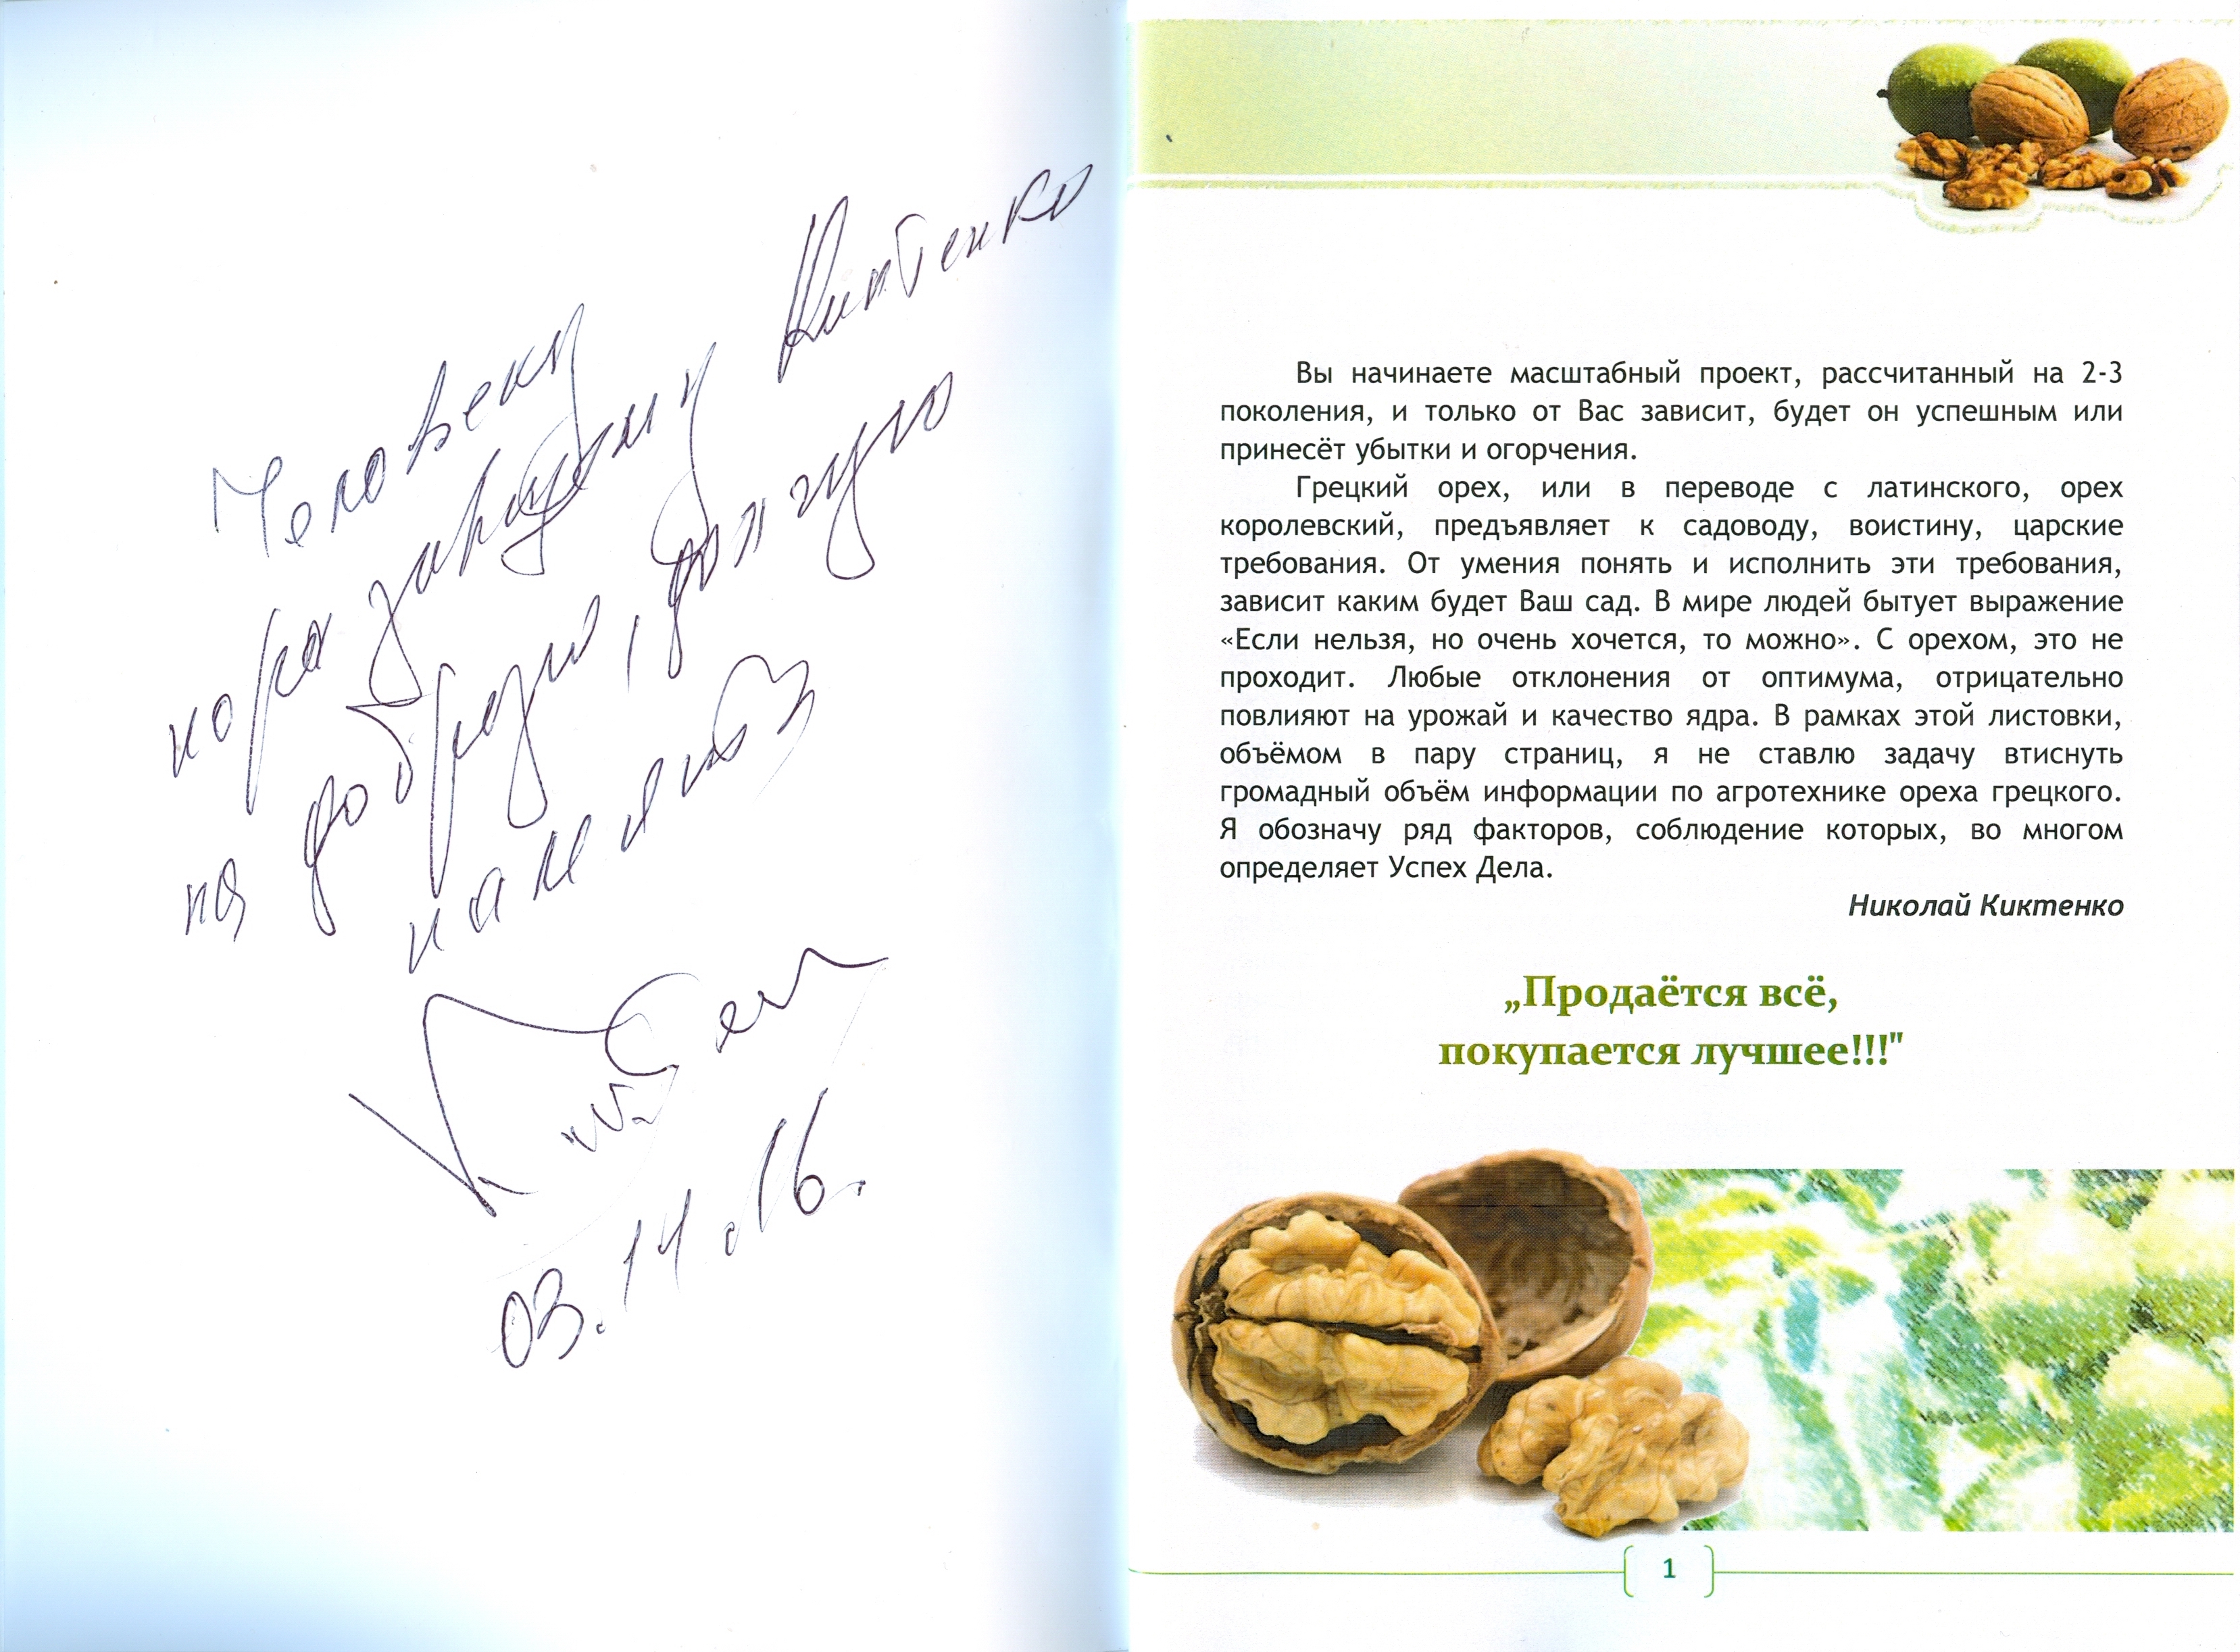 Человеку
поразившему Киктенко
на добрую, долгую
память
03.14.16.
Вы начинаете масштабный проект, рассчитанный на 2-3
поколения, и только от Вас зависит, будет он успешным или
принесёт убытки и огорчения.
Грецкий орех, или в переводе с латинского, орех
королевский, предъявляет к садоводу, воистину, царские
требования. От умения понять и исполнить эти требования,
зависит каким будет Ваш сад. В мире людей бытует выражение
«Если нельзя, но очень хочется, то можно». С орехом, это не
проходит. Любые отклонения от оптимума, отрицательно
повлияют на урожай и качество ядра. В рамках этой листовки,
объёмом в пару страниц, я не ставлю задачу втиснуть
громадный объём информации по агротехнике ореха грецкого.
Я обозначу ряд факторов, соблюдение которых, во многом
определяет Успех Дела.
Николай Киктенко
„Продаётся всё,
покупается лучшее!!!"
1